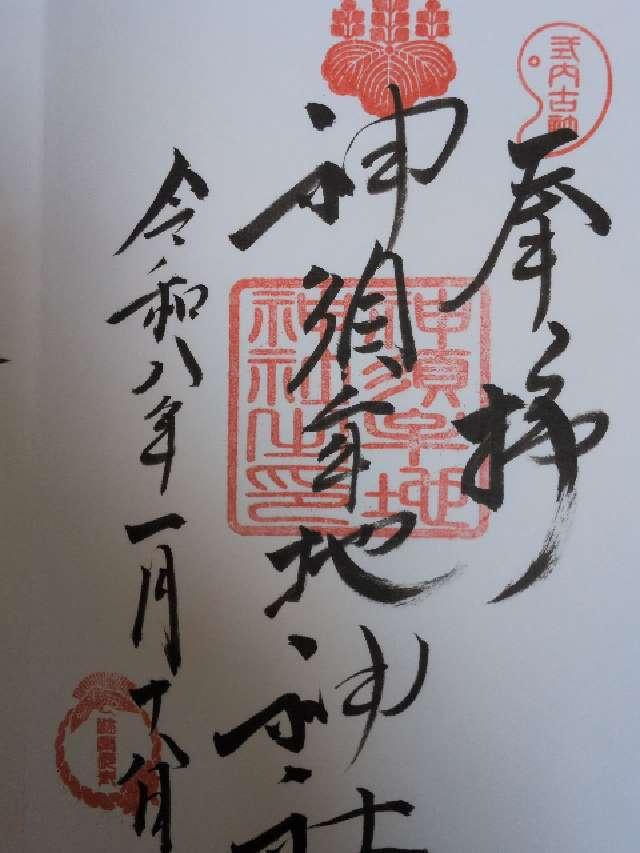 式内古
奉拝
神須牟地神社
神須牟地
神社之印
令和八年一月十八日